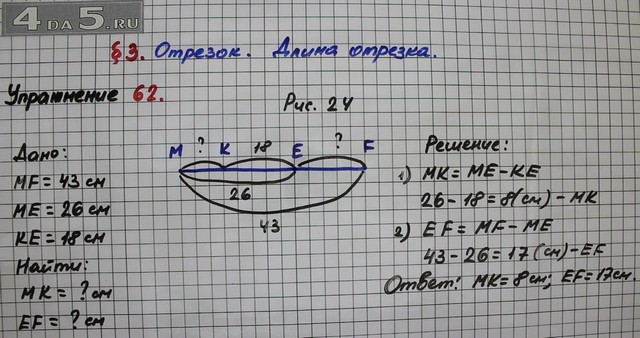 4 ДА 5.RU
§3. Отрезок. Длина отрезка.
Упражнение 62.
Рис. 24
Дано:
MF = 43 см
ME = 26 см
KE = 18 см
Найти:
MK = ? см
EF = ? см
M ? K 18 E ? F
26
43
Решение:
1) MK = ME - KE
26 - 18 = 8(см) - MK
2) EF = MF - ME
43 - 26 = 17 (см) - EF
Ответ: MK = 8см; EF = 17см.